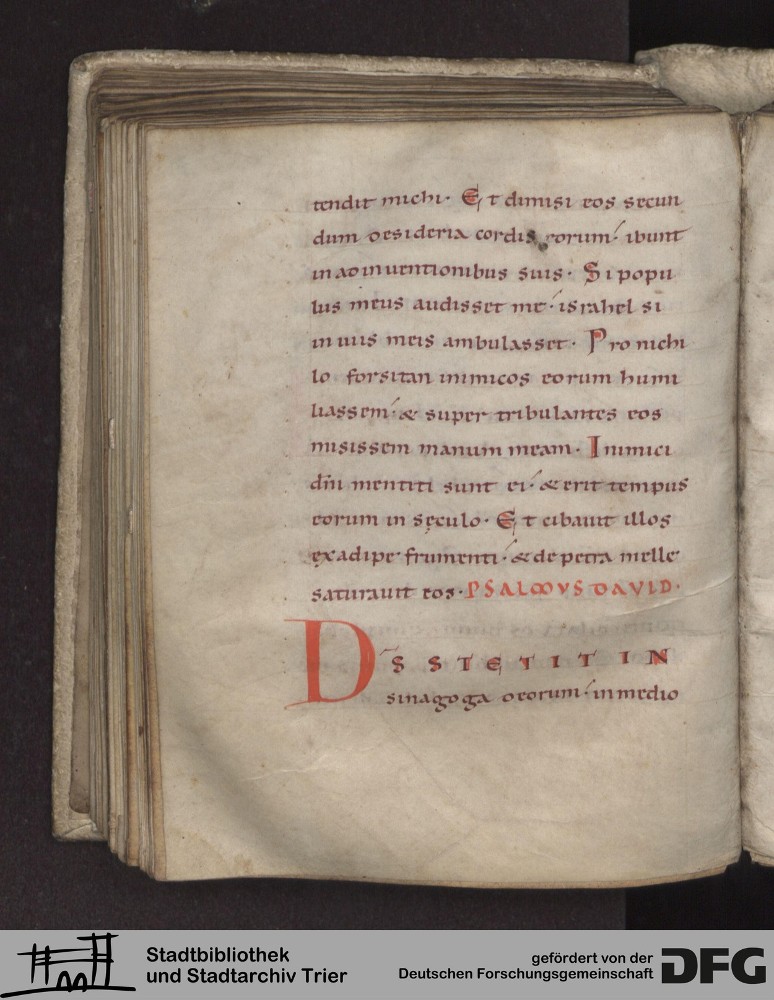 tendit michi· Et dimisi eos secun
dum desideria cordis eorum· ibunt
in adinuentionibus suis· Si popu
lus meus audisset me· israhel si
in uiis meis ambulasset· Pro nichi
lo forsitan inimicos eorum humi
liassem· & super tribulantes eos
misissem manum meam· Inimici
dñi mentiti sunt ei· & erit tempus
eorum in sęculo· Et cibauit illos
ex adipe frumenti· & de petra melle
saturauit eos· PSALMVS DAVID·
D̅S STETIT IN
sinagoga deorum· in medio
Stadtbibliothek
und Stadtarchiv Trier
gefördert von der
Deutschen Forschungsgemeinschaft
DFG